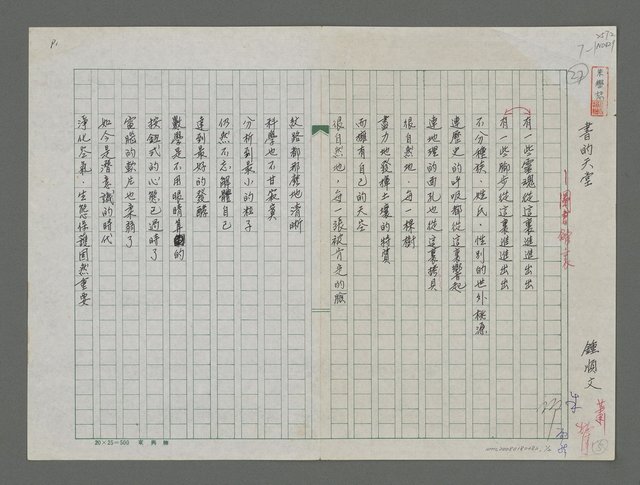 書的天堂
—圖書館裏
鍾順文
有一些靈魂從這裏進進出出
有一些腳步從這裏進進出出
不分種族、姓氏、性別的世外桃源
連歷史的呼吸都從這裏響起
連地理的面孔也從這裏拷貝
很自然地，每一棵樹
盡力地發揮土壤的特質
而擁有自己的天空
很自然地，每一張被月亮的臉
紋路都那麼地清晰
科學也不甘寂寞
分析到最小的粒子
仍然不忘解體自己
達到最好的發酵
數學是不用眼睛算的
按鈕式的心態已過時了
電腦的軟片也柔弱了
如今是潛意識的時代
淨化空氣，生態保護固然重要
P1
20×25=500